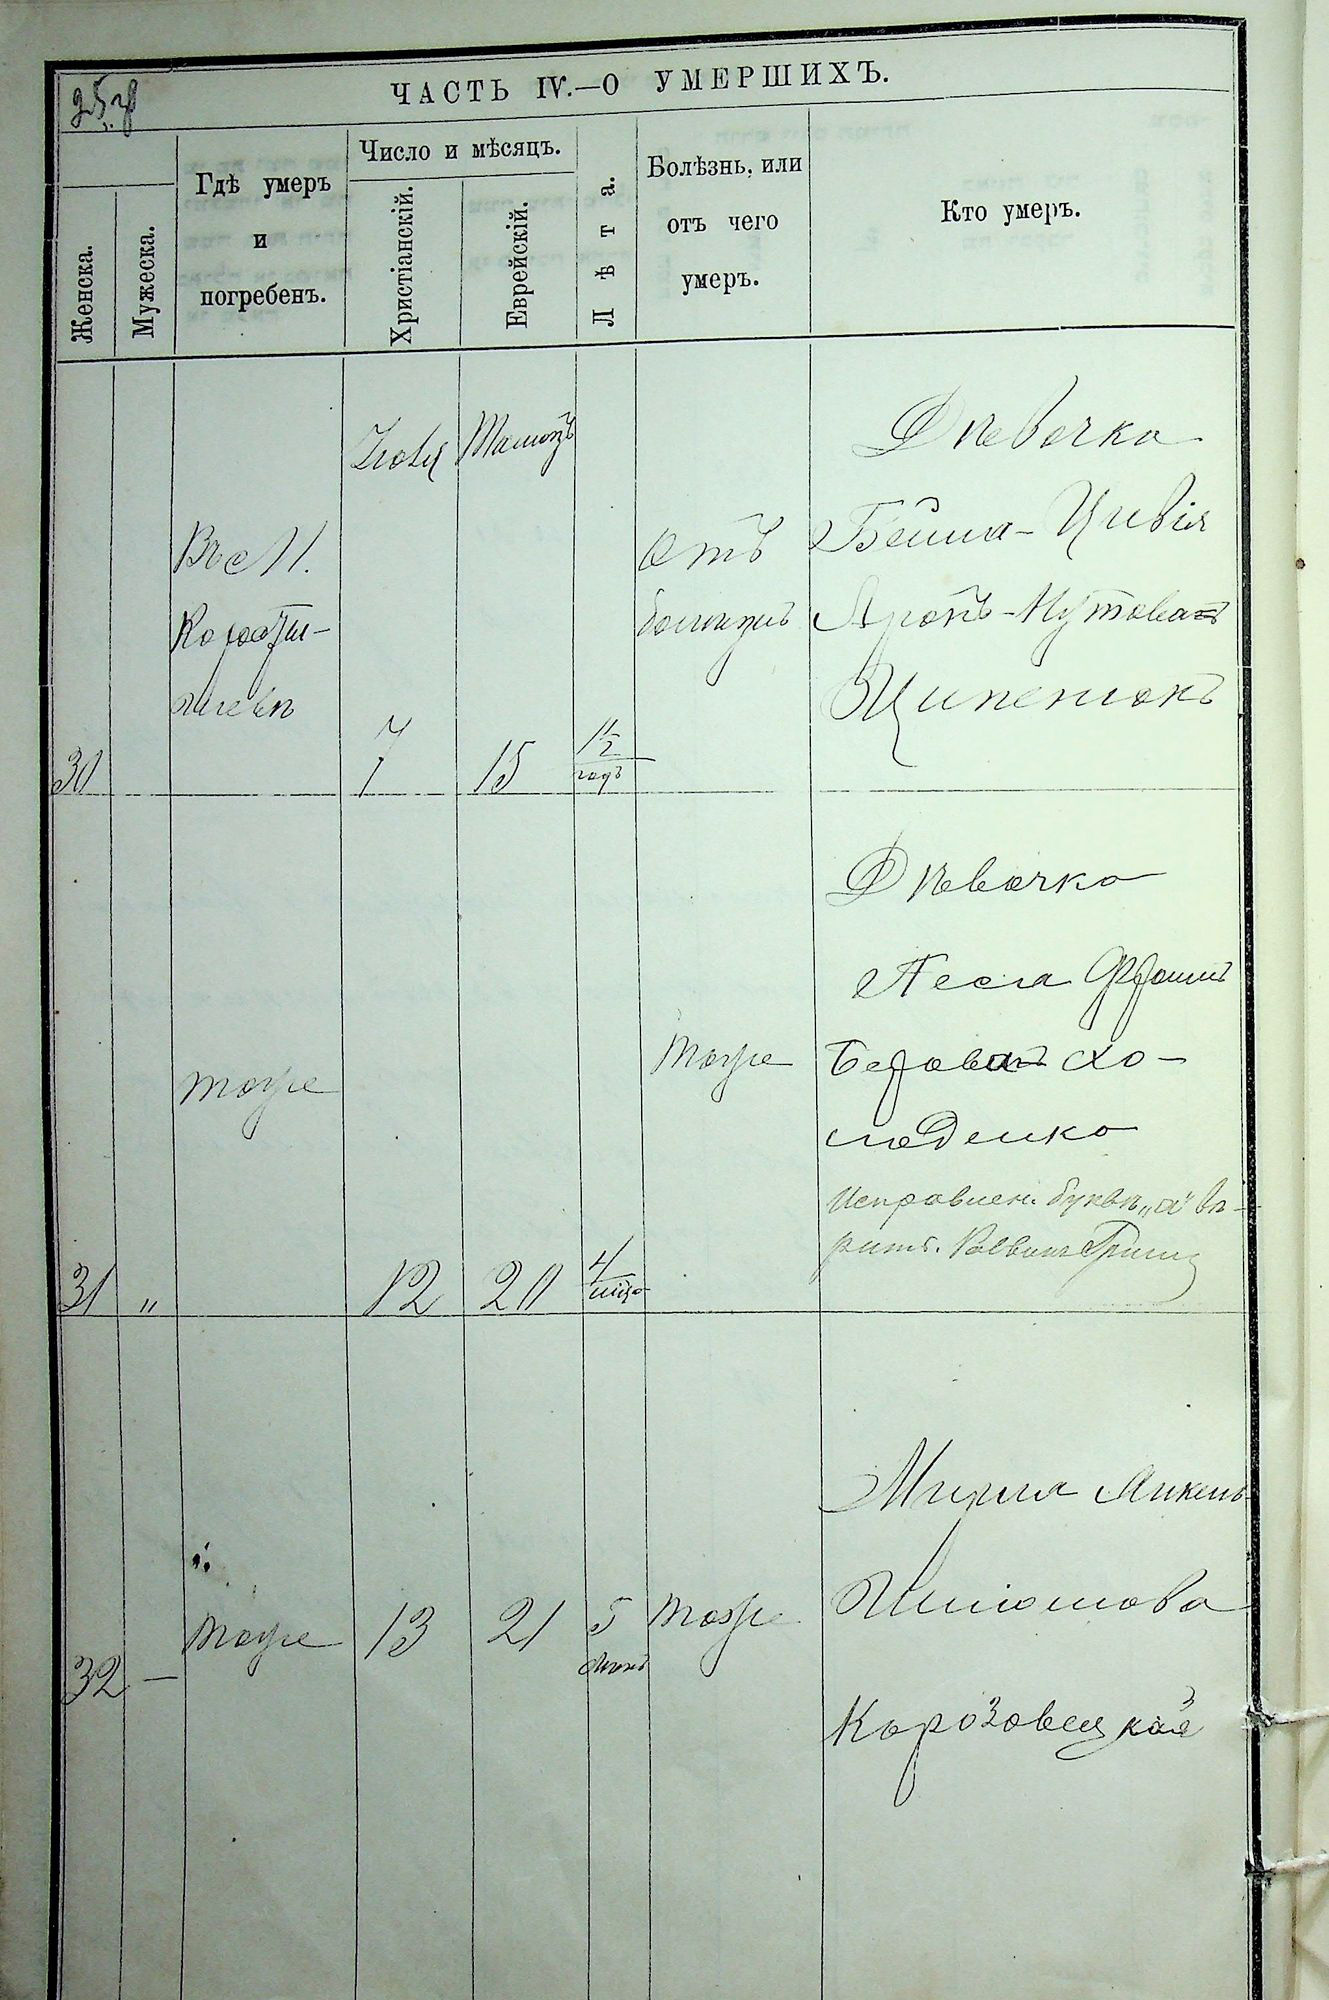 ЧАСТЬ IV.—О УМЕРШИХЪ.
Женска.
Мужеска.
Гдѣ умеръ
и
погребенъ.
Число и мѣсяцъ.
Христіанскій.
Еврейскій.
Лѣта.
Болѣзнь, или
отъ чего
умеръ.
Кто умеръ.
30
Въ М.
Коросты-
шевѣ
Іюля
7
Тамузъ
15
1½
годъ
Отъ
Дѣвочка
Бейла-Цивія
Аронъ-Нутова
Ципенюкъ
31
"
тоже
12
20
4
тоже
Дѣвочка
Песя Фроимъ
Берова Хо-
лоденко
Исправлен. букв. „а" вѣ-
рить. Раввинъ
32
—
тоже
13
21
5
тоже
Корозовецкая